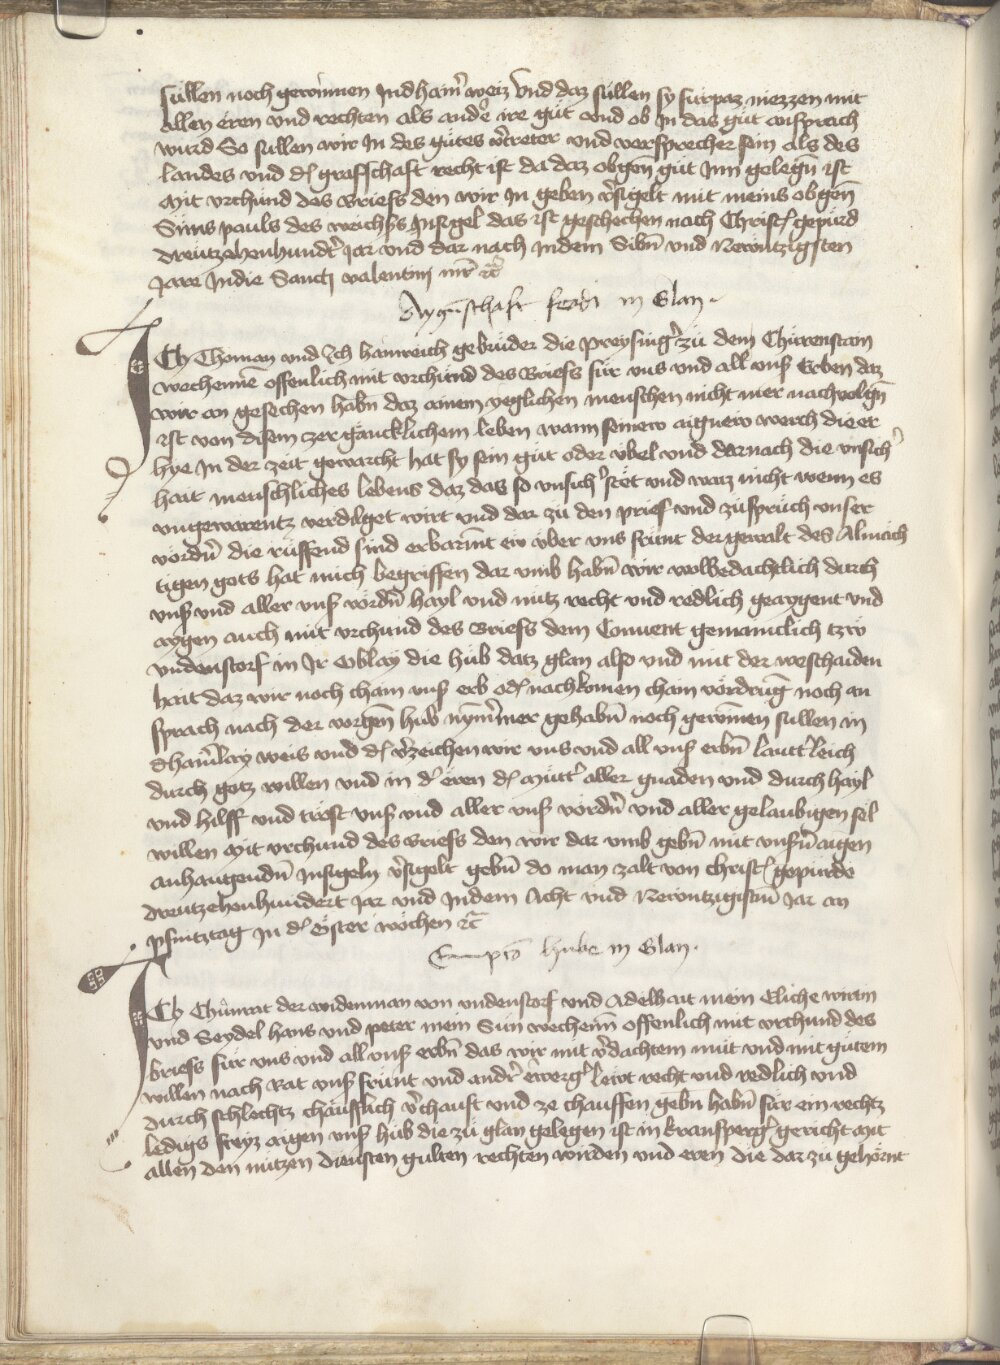 süllen noch gewinnen Indhain̄ weiz Vnd daz süllen sy fürpaz niezzen mit
allen eren vnd rechten als and͛e ire güt vnd ob In das güt ansprach
wurd So sullen wir In des gütes v͛treter vnd versprecher sein als des
landes vnd d͛ graffschaft recht ist da daz obgen̄ güt Inn gelegn̄ ist
Mit vrchund des brieffs den wir In geben v͛sigelt mit meins obgen̄
Süns pauls des Insigel das ist geschechen nach Christ͛ gepürd
Dreützehenhundt͛ Jar vnd dar nach Indem Sibn̄ vnd Newntzigsten
Jare Indie Sancti valentini mr̄ ꝛc̄
Aygnschaft in Glan.
Ich Thoman vnd Ich hainreich gebrüder die preysing͛ zü dem Chürenstain
wechennē offenlich mit vrchünd des brieffs für vns vnd all vns͛ Erben daz
wir an gesechen habn̄ daz ainem yeglichen menschen nicht mer nachuolgn̄
ist von disem zergäncklichem leben wann seinew aignew werch die er
hye In der zeit gewarcht hat sy sein güt oder vbel vnd darnach die vnsich͛
hait menschliches lebens daz das so vnsich͛ stet vnd waiz nicht wenn es
vngewarentz verdilget wirt vnd dar zu den prief vnd züsprüch vnser
vördn̄ die rüffend sind erbarmt ew vber vns frünt der gewalt des Almäch
tigen gots hat mich begriffen dar vmb habn̄ wir wolbedachtlich durch
vns͛ vnd aller vns͛ vördn̄ hayl vnd nutz recht vnd redlich geaygent vnd
aygen auch mit vrchund des brieffs dem Conuent gemainclich tzw
vndenstorf in Ir Oblay die hüb datz glan also vnd mit der weschaiden
hait daz wir noch chain vns͛ erb od͛ nachkomen chain vördrūg noch an
sprach nach der vorgen̄ hub nym̄ermer gehabn̄ noch gewinnen sullen in
dhain̄lay weis vnd d͛ v͛zeichen wir vns vnd all vns͛ erbn̄ lautt͛leich
durch gotz willen vnd in d͛ eren d͛ mütt͛ aller gnaden vnd durch hayl
vnd hilff vnd trost vns͛ vnd aller vns͛ vördn̄ vnd aller gelaubigen sel
willen Mit vrchund des brieffs den wir dar vmb gebn̄ mit vnsn̄ aigen
anhangendn̄ Insigeln v͛sigelt gebn̄ do man zalt von Christ͛ gepürde
Dreützehenhundert Jar vnd Indem Acht vnd Newntzigistn̄ Jar an
pfintztag In d͛ Oster wochen ꝛc̄
Empcio hube in Glan.
Ich Chünrat der widenman von vndenstorf vnd Adelhait mein Eliche wirtin
vnd Seydel hans vnd peter mein Sün wechenn̄ offenlich mit vrchund des
brieffs für vns vnd all vns͛ erbn̄ das wir mit v͛dachtem müt vnd mit gütem
willen nach Rat vns͛ frünt vnd andr͛ erwerg͛ lewt recht vnd redlich vnd
durch schlechtz chäufflich v͛chauft vnd ze chauffen gebn habn̄ für ein rechtz
ledigs freyz aigen vns͛ hüb die zü glan gelegen ist in kransperg͛ gericht Mit
allen den nützen diensten gülten rechten wirden vnd eren die dar zü gehörnt